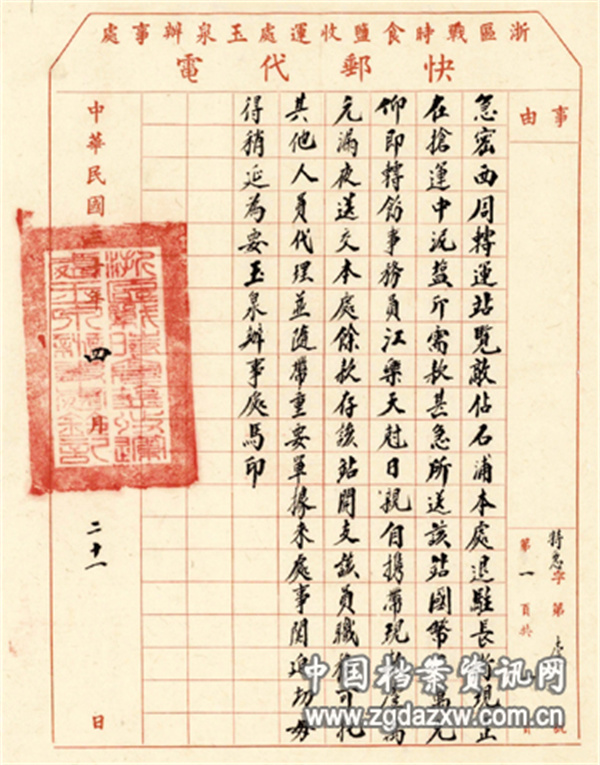 浙區戰時食鹽收運處玉泉辦事處
快郵代電
事由
特急字第
第一頁共
急密西周轉運站覽敵佔石浦本處退駐長街現正
在搶運中泥鹽斤需款甚急所送該站國幣 萬元
仰即轉飭事務員江樂天尅日親自携帶現款 萬
元漏夜送交本處餘款存該站開支該員職務可托
其他人員代理並隨帶重要單據來處事関迫切毋
得稍延為要玉泉辦事處馬印
中華民國三十年四月二十一日
中国档案资讯网
www.zgdazxw.com.cn